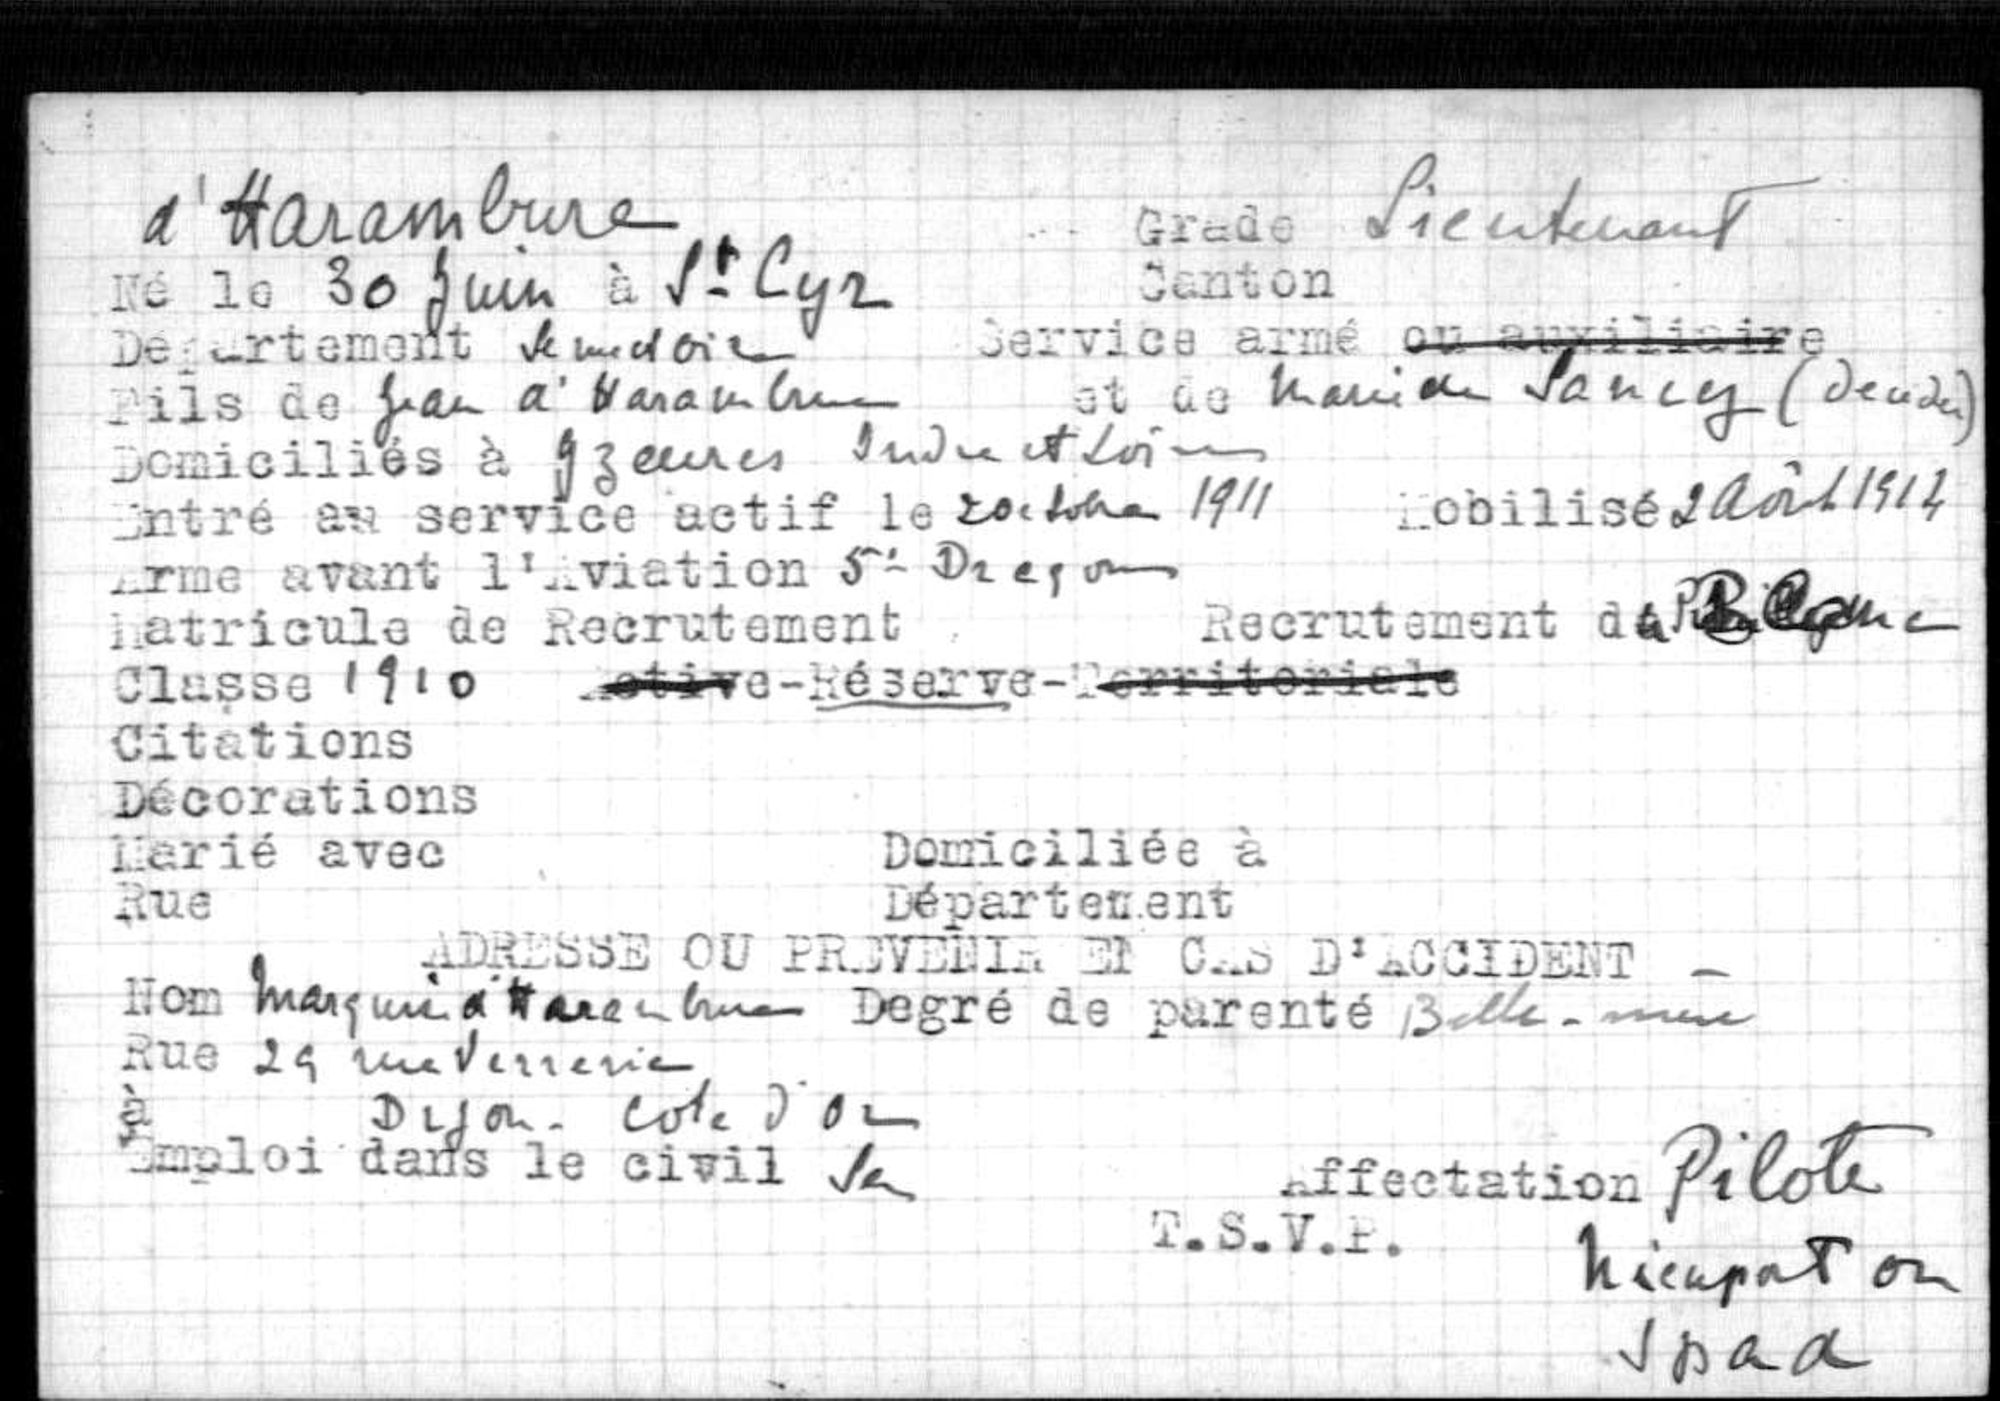 d'Harambure Grade Lieutenant
Né le 30 Juin à St Cyr Canton
Département Seine et Oise Service armé ou auxiliaire
Fils de Jean d'Harambure et de Marie de Sancy (décédée)
Domiciliés à Yzeures Indre et Loire
Entré au service actif le 2 octobre 1911 Mobilisé 2 Août 1914
Arme avant l'Aviation 5e Dragons
Matricule de Recrutement Recrutement de
Classe 1910 Active-Réserve-Territoriale
Citations
Décorations
Marié avec Domiciliée à
Rue Département
ADRESSE OU PREVENIR EN CAS D'ACCIDENT -
Nom Marquise d'Harambure Degré de parenté Belle-mère
Rue 29 rue Verrerie
à Dijon - Cote d'Or
Emploi dans le civil Affectation Pilote
T.S.V.P. Nieuport ou
Spad